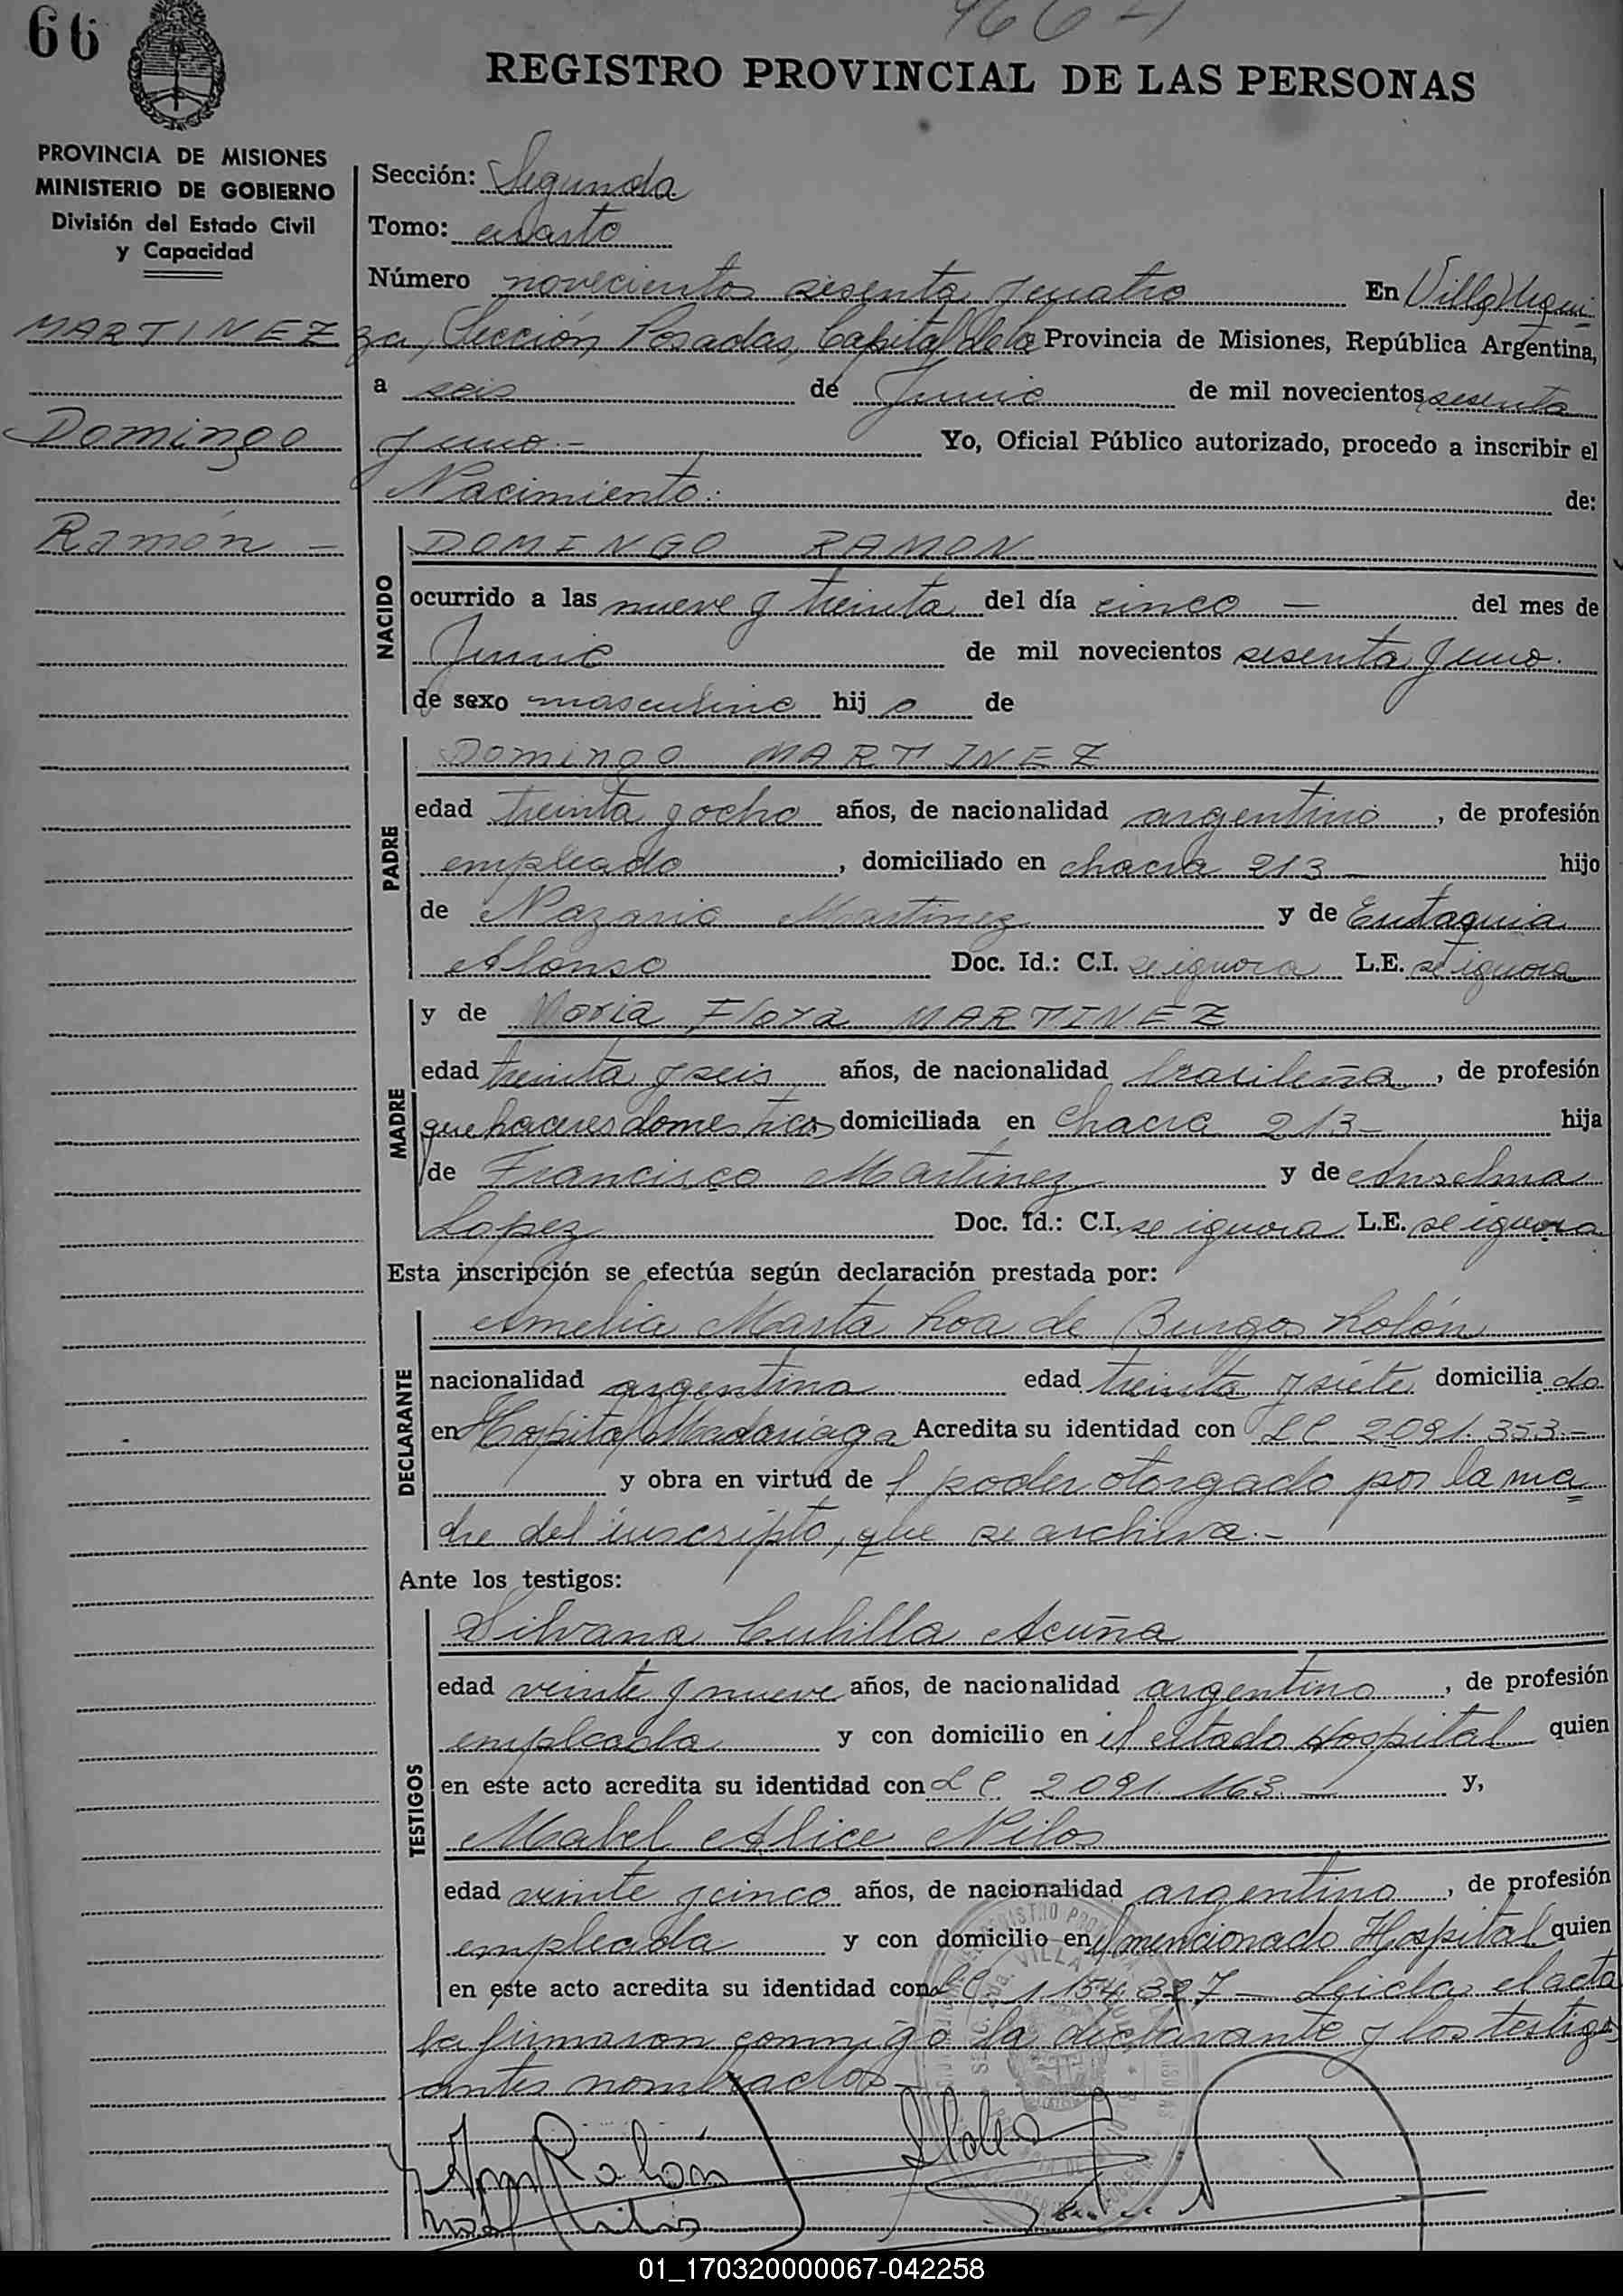 66
964-1
REGISTRO PROVINCIAL DE LAS PERSONAS
PROVINCIA DE MISIONES
MINISTERIO DE GOBIERNO
División del Estado Civil
y Capacidad
MARTINEZ
Domingo
Ramón -
Sección: Segunda
Tomo: cuarto
Número novecientos sesenta y cuatro En Villa Urqui
za, Sección Posadas, Capital de la Provincia de Misiones, República Argentina,
a seis de Junio de mil novecientos sesenta
y uno.- Yo, Oficial Público autorizado, procedo a inscribir el
Nacimiento.- de:
NACIDO
DOMINGO RAMON
ocurrido a las nueve y treinta del día cinco — del mes de
Junio de mil novecientos sesenta y uno.
de sexo masculino hij o de
PADRE
Domingo MARTINEZ
edad treinta y ocho años, de nacionalidad argentino, de profesión
empleado, domiciliado en chacra 213 — hijo
de Nazario Martinez y de Eustaquia
Alonso Doc. Id.: C.I. se ignora L.E. se ignora
MADRE
y de Maria Flora MARTINEZ
edad treinta y seis años, de nacionalidad brasileña, de profesión
quehaceres domesticos domiciliada en Chacra 213- hija
de Francisco Martinez y de Anselma
Lopez Doc. Id.: C.I. se ignora L.E. se ignora
Esta inscripción se efectúa según declaración prestada por:
DECLARANTE
Amelia Marta Roa de Burgos Rolón
nacionalidad argentina edad treinta y siete domicilia da
en Hospital Madariaga Acredita su identidad con LC 2091.353.-
y obra en virtud de l poder otorgado por la ma
dre del inscripto, que se archiva.-
Ante los testigos:
TESTIGOS
Silvana Cubilla Acuña
edad veinte y nueve años, de nacionalidad argentina, de profesión
empleada y con domicilio en el citado Hospital quien
en este acto acredita su identidad con LC 2091.163.— y,
Mabel Alice Nilos
edad veinte y cinco años, de nacionalidad argentina, de profesión
empleada y con domicilio en el mencionado Hospital quien
en este acto acredita su identidad con LC 1154.327 - Leida el acta
la firmaron conmigo la declarante y los testigos
antes nombrados.-
01_170320000067-042258